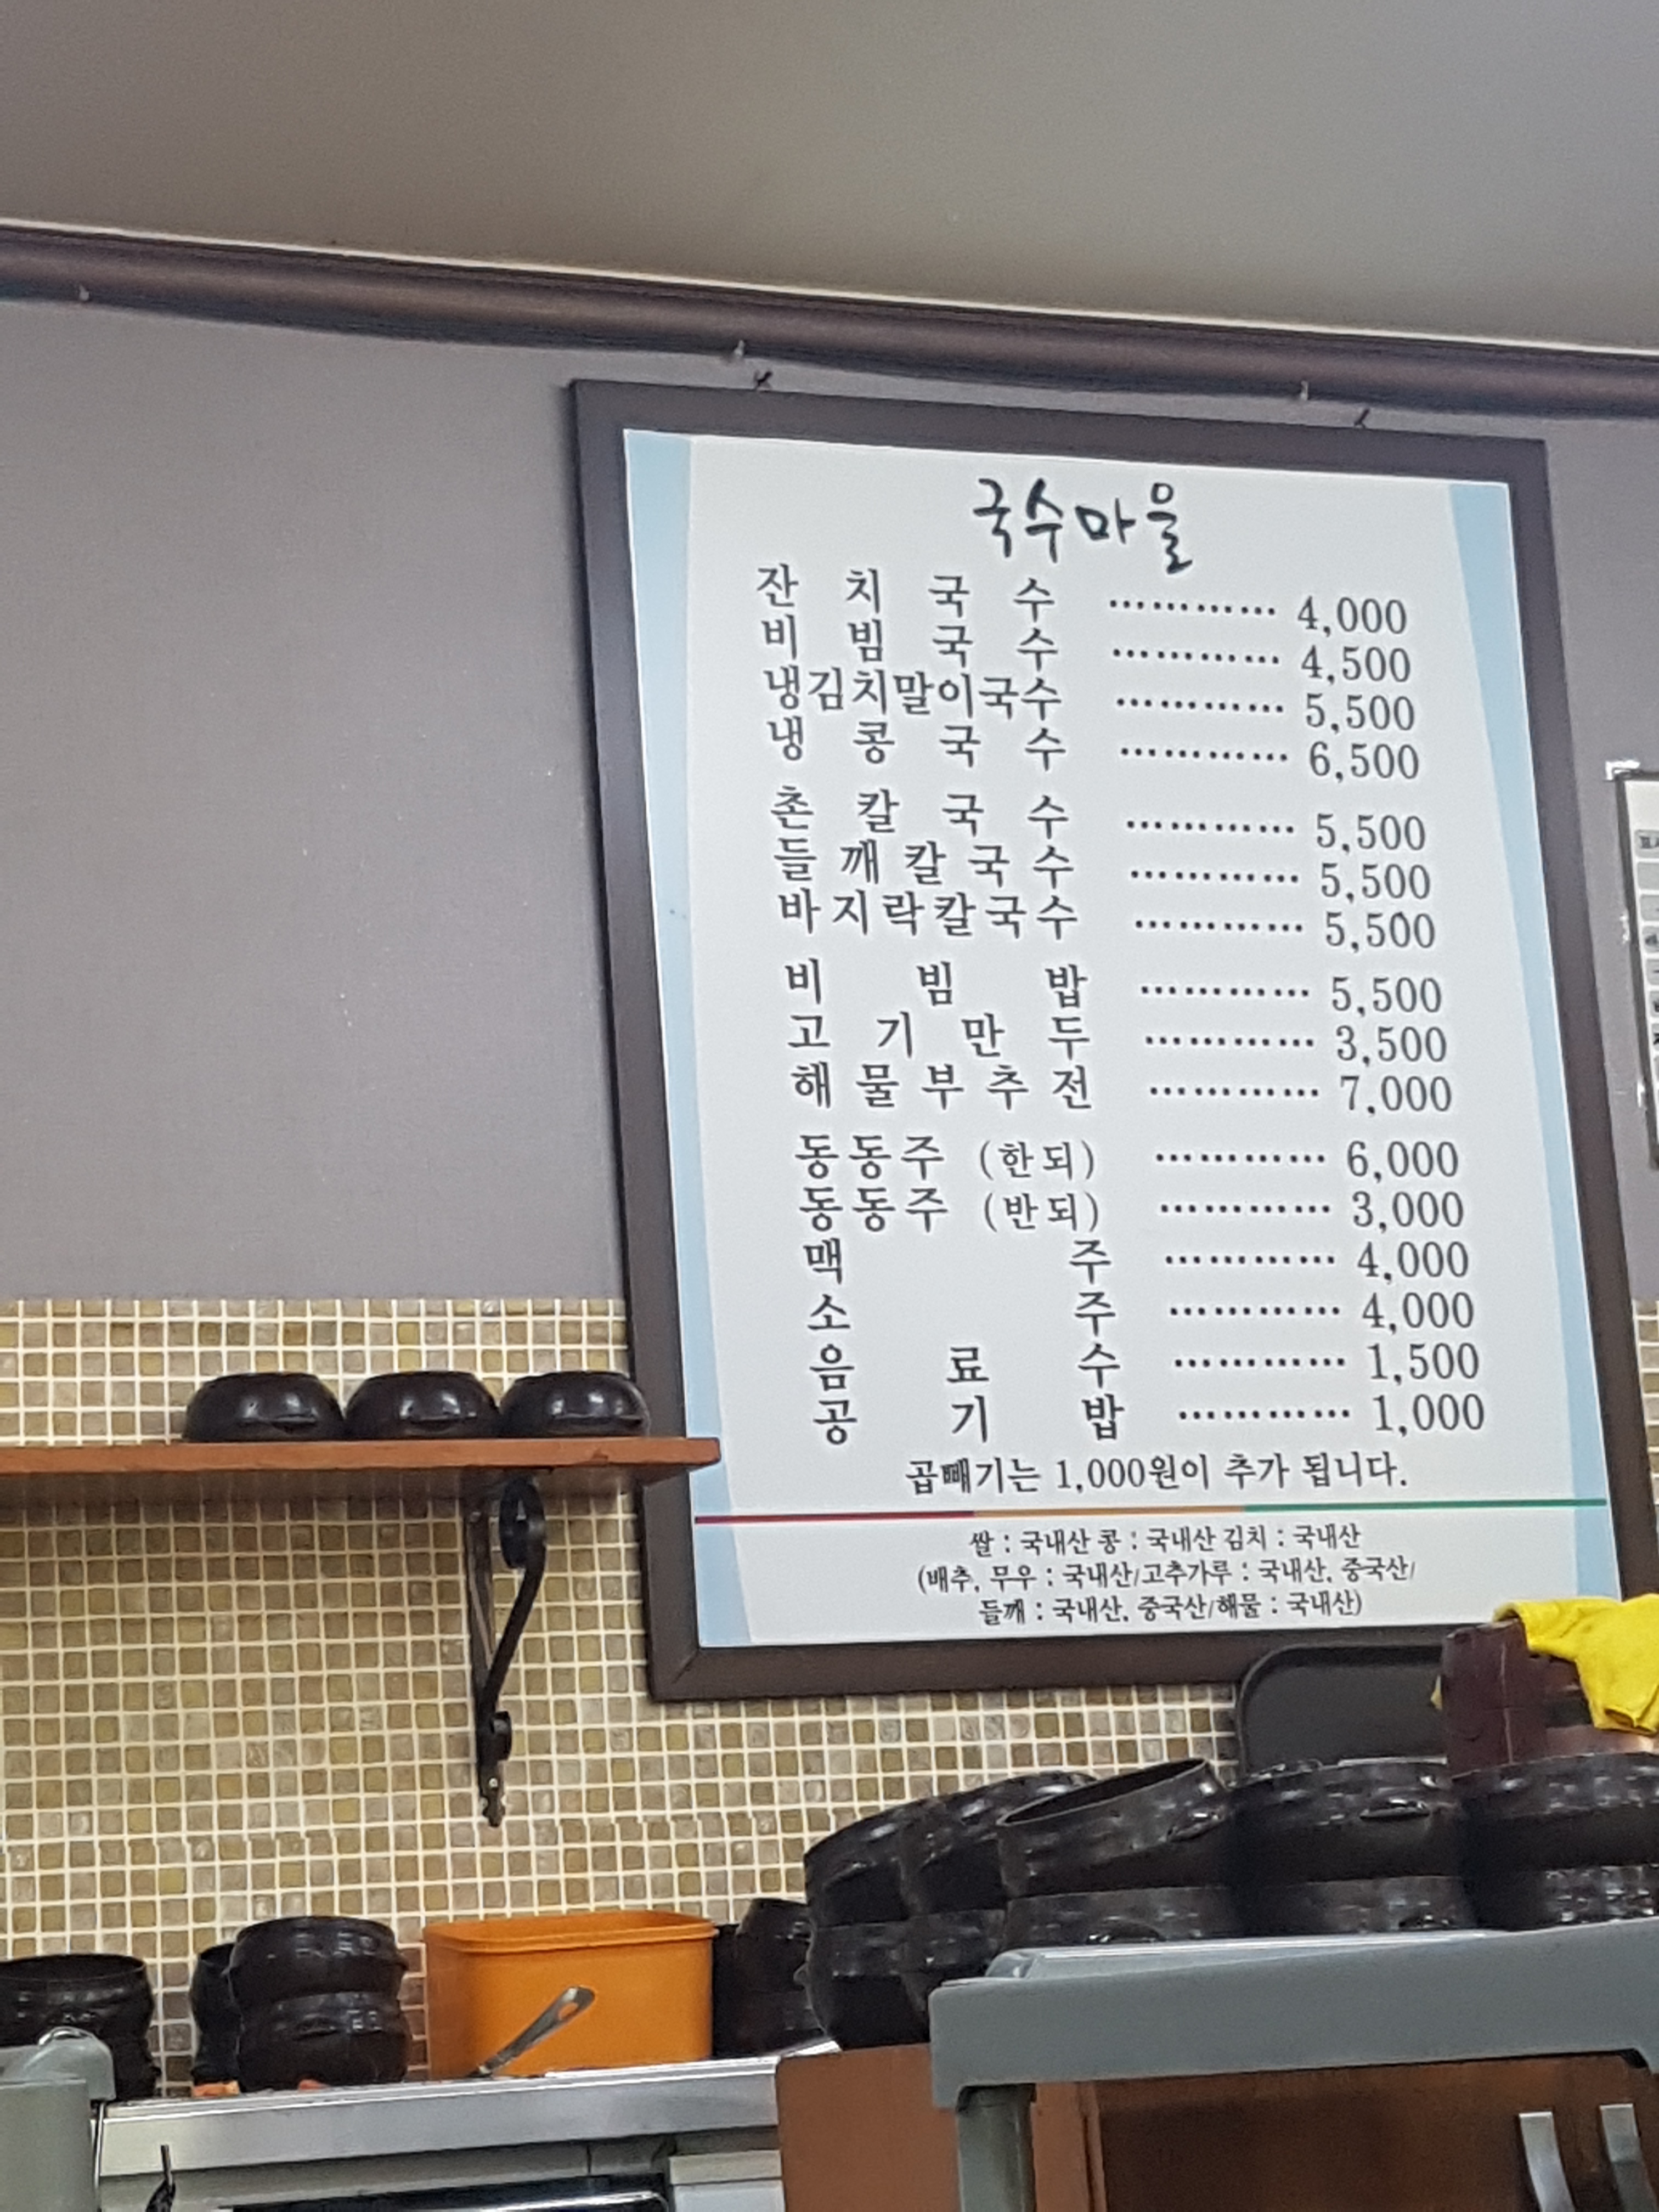 국수마을
잔치국수 ············ 4,000
비빔국수 ············ 4,500
냉김치말이국수 ············ 5,500
냉콩국수 ············ 6,500
촌칼국수 ············ 5,500
들깨칼국수 ············ 5,500
바지락칼국수 ············ 5,500
비빔밥 ············ 5,500
고기만두 ············ 3,500
해물부추전 ············ 7,000
동동주 (한되) ············ 6,000
동동주 (반되) ············ 3,000
맥주 ············ 4,000
소주 ············ 4,000
음료수 ············ 1,500
공기밥 ············ 1,000
곱빼기는 1,000원이 추가 됩니다.
쌀 : 국내산 콩 : 국내산 김치 : 국내산
(배추, 무우 : 국내산/고추가루 : 국내산, 중국산/
들깨 : 국내산, 중국산/해물 : 국내산)